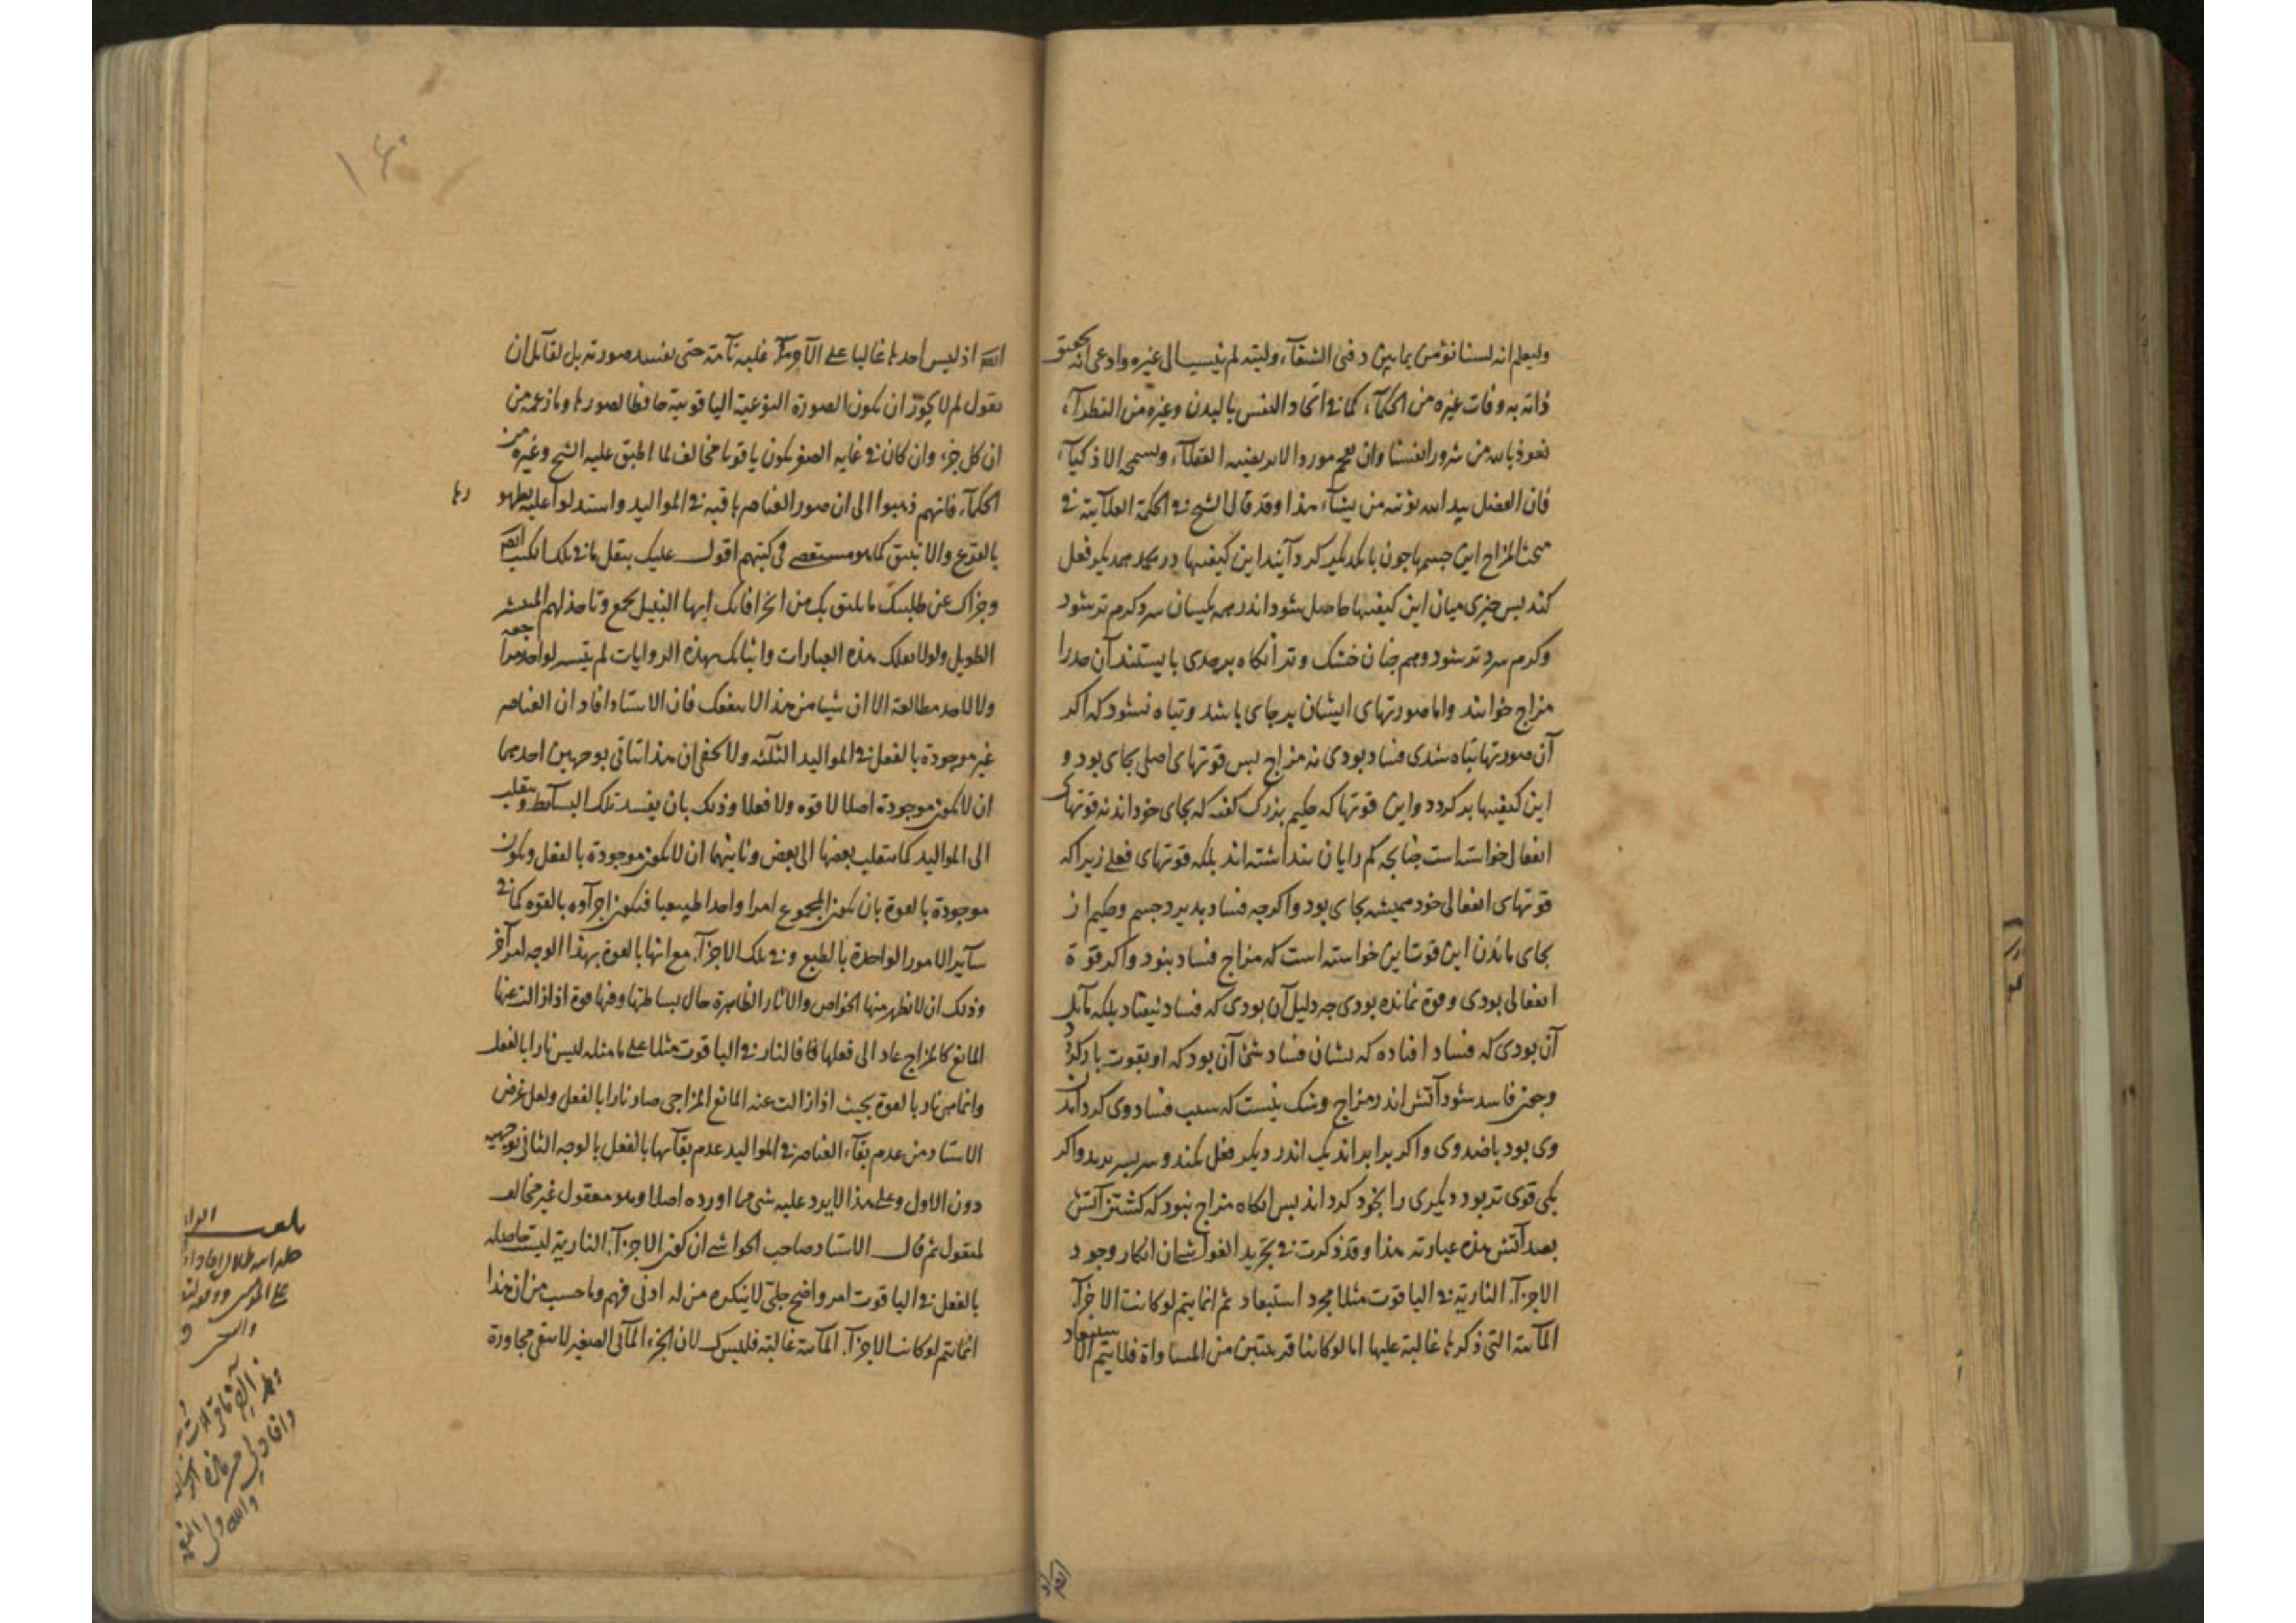 وليعلم انه لسنا نؤمن بما بين دفتى الشفآء وليته لم ينسب الى غيره وادعى انه تحقيق
ذاته به وفات غيره من الحكمآء كما فى اتحاد النفس بالبدن وغيره من النظرآء
نعوذ بالله من شرور انفسنا وان الامر يعنيه العقلآء ويسمعه الاذكيآء
فان الفضل بيد الله يؤتيه من يشآء هذا وقد قال الشيخ فى الحكمة العلآئية فى
مبحث المزاج اين جسمها جون با يكديكر كرد آيند اين كيفيتها در يكديكر فعل
كند بس جيزى ميان اين كيفيتها حاصل شود اندر همه يكسان سرد كرم تر شود
وكرم سرد تر شود وهم جنان خشك وتر آنكاه بر حدى بايستند آن حد را
مزاج خوانند واما صورتهاى ايشان بر جاى باشد وتباه نشود كه اكر
آن صورتها تباه شدى فساد بودى نه مزاج بس قوتهاى اصلى بجاى بود و
اين كيفيتها بر كردد واين قوتها كه حكيم بزرك كفته كه بجاى خود اند نه قوتهاى
انفعالى خواسته است جنانجه كم رايان بنداشته اند بلكه قوتهاى فعلى زيرا كه
قوتهاى انفعالى خود هميشه بجاى بود واكرجه فساد بذيرد جسم وحكيم از
بجاى ماندن اين قوتها اين خواسته است كه مزاج فساد نبود واكر قوة
انفعالى بودى وقوة نمانده بودى جه دليل آن بودى كه فساد نيفتاد بلكه
آن بودى كه فساد افتاده كه نشان فساد شئ آن بود كه او بقوت باز كردد
وجون فاسد شود آتش اندر مزاج وشك نيست كه سبب فساد وى
وى بود يا ضد وى واكر برابر اند يك اندر ديكر فعل كند واكر
يكى قوى تر بود ديكرى را بخود كرداند بس آنكاه مزاج نبود كه كشتن آتش
بود آتش هذه عبارته هذا وقد ذكرت فى تجريد الغواشى ان انكار وجود
الاجزآء النارية فى الياقوت مثلا مجرد استبعاد ثم انما يتم لو كانت الاجزآء
المآئية التى ذكرها غالبة عليها اما لو كانتا قريبتين من المساواة فلا يتم الاستبعاد
ايضا
١٤٠
ايضا اذ ليس احدها غالبا على الآخر غلبة تآمة حتى يفسد صورته بل لقآئل ان
يقول لم لا يجوز ان يكون الصورة النوعية الياقوتية حافظا لصورها وما زعمه من
ان كل جزء وان كان فى غاية الصغر يكون ياقوتا مخالف لما اطبق عليه الشيخ وغيره من
الحكمآء فانهم ذهبوا الى ان صور العناصر باقية فى المواليد واستدلوا عليه بظهورها
بالقرع والانبيق كما هو مستقصى فى كتبهم اقول عليك بنقل ما فى تلك الكتب ايضا
وجزاك عن طلبك ما يليق بك من انحرافاتك ايها النبيل
الطويل ولولا نقلك هذه العبارات واتيانك بهذه الروايات لم يتيسر لواحد مراجعة
ولا لاحد مطالعة الا ان شيئا من هذا لا ينفعك فان الاستاد افاد ان العناصر
غير موجودة بالفعل فى المواليد الثلثة ولا يخفى ان هذا يتاتى بوجهين احدهما
ان لا يكون موجودة اصلا لا قوة ولا فعلا وذلك بان يفسد تلك البسآئط وينقلب
الى المواليد كما ينقلب بعضها الى بعض وثانيهما ان لا يكون موجودة بالفعل ويكون
موجودة بالقوة بان يكون المجموع امرا واحدا طبيعيا فيكون اجزآؤه بالقوة كما فى
سآئر الامور الواحدة بالطبع وفى تلك الاجزآء مع انها بالقوة بهذا الوجه امر آخر
وذلك ان لا يظهر منها الخواص والآثار الظاهرة حال بساطتها وفيها قوة اذا زالت عنها
المانع كالمزاج عاد الى فعلها فالنار فى الياقوت مثلا على ما مثله ليس نارا بالفعل
وانما هى نار بالقوة بحيث اذا زالت عنه المانع المزاجى صار نارا بالفعل ولعل غرض
الاستاد من عدم بقآء العناصر فى المواليد عدم بقآئها بالفعل بالوجه الثانى
دون الاول وعلى هذا لا يرد عليه شئ مما اورده اصلا وهو معقول غير مخالف
لمنقول ثم قال الاستاد صاحب الحواشى ان كون الاجزآء النارية ليست حاصلة
بالفعل فى الياقوت امر واضح جلى لا ينكره من له ادنى فهم وما حسب من ان هذا
انما يتم لو كانت الاجزآء المآئية غالبة فليس كذلك لان الجزء المآئى الصغير لا يبقى مجاورة
والله ولى